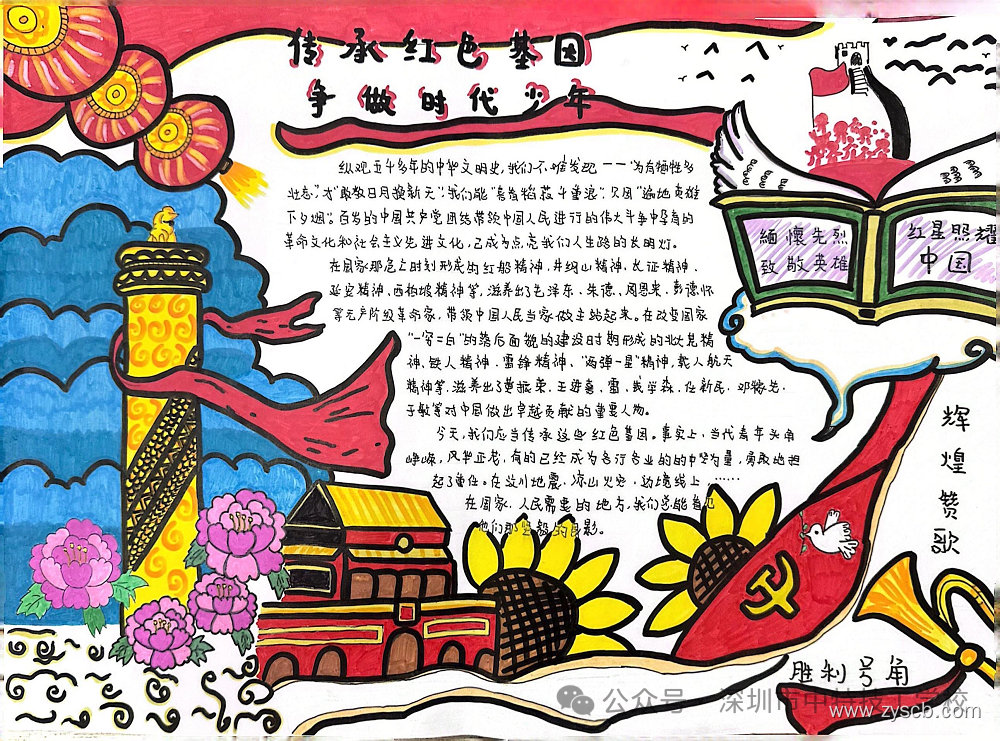 传承红色基因
争做时代少年
纵观五千多年的中华文明史,我们不难发现——"为有牺牲多
壮志",才"敢教日月换新天";我们能"喜看稻菽千重浪",只因"遍地英雄
下夕烟"。百岁的中国共产党团结带领中国人民进行的伟大斗争中孕育的
革命文化和社会主义先进文化,已成为点亮我们人生路的长明灯。
在国家那危亡时刻形成的红船精神,井纲山精神,长征精神,
延安精神,西柏坡精神等,滋养出了毛泽东、朱德、周恩来、彭德怀
等无产阶级革命家,带领中国人民当家做主站起来。在改变国家
"一穷二白"的落后面貌的建设时期形成的北大荒精
神,铁人精神,雷锋精神,"两弹一星"精神,载人航天
精神等,滋养出了黄旭荣、王进喜、雷、钱学森、任新民、邓稼先、
于敏等对中国做出卓越贡献的重要人物。
今天,我们应当传承这些红色基因。事实上,当代青年头角
峥嵘,风华正茂,有的已经成为各行各业的的中坚力量,勇敢地担
起了重任。在汶川地震,凉山火灾,边境线上,……
在国家、人民需要的地方,我们总能看见
他们那坚毅的身影。
緬懷先烈
致敬英雄
红星照耀
中国
辉煌赞歌
胜利号角
公众号 深圳市中林技工学校
www.zyscb.com